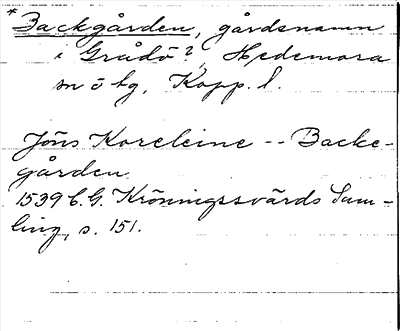 *Backgården, gårdsnamn
i Grådö?, Hedemora
sn ö tg, Kopp. l.
Jöns Koreleine -- Backe-
gården
1539 C.G. Kröningssvärds Sam-
ling, s. 151.